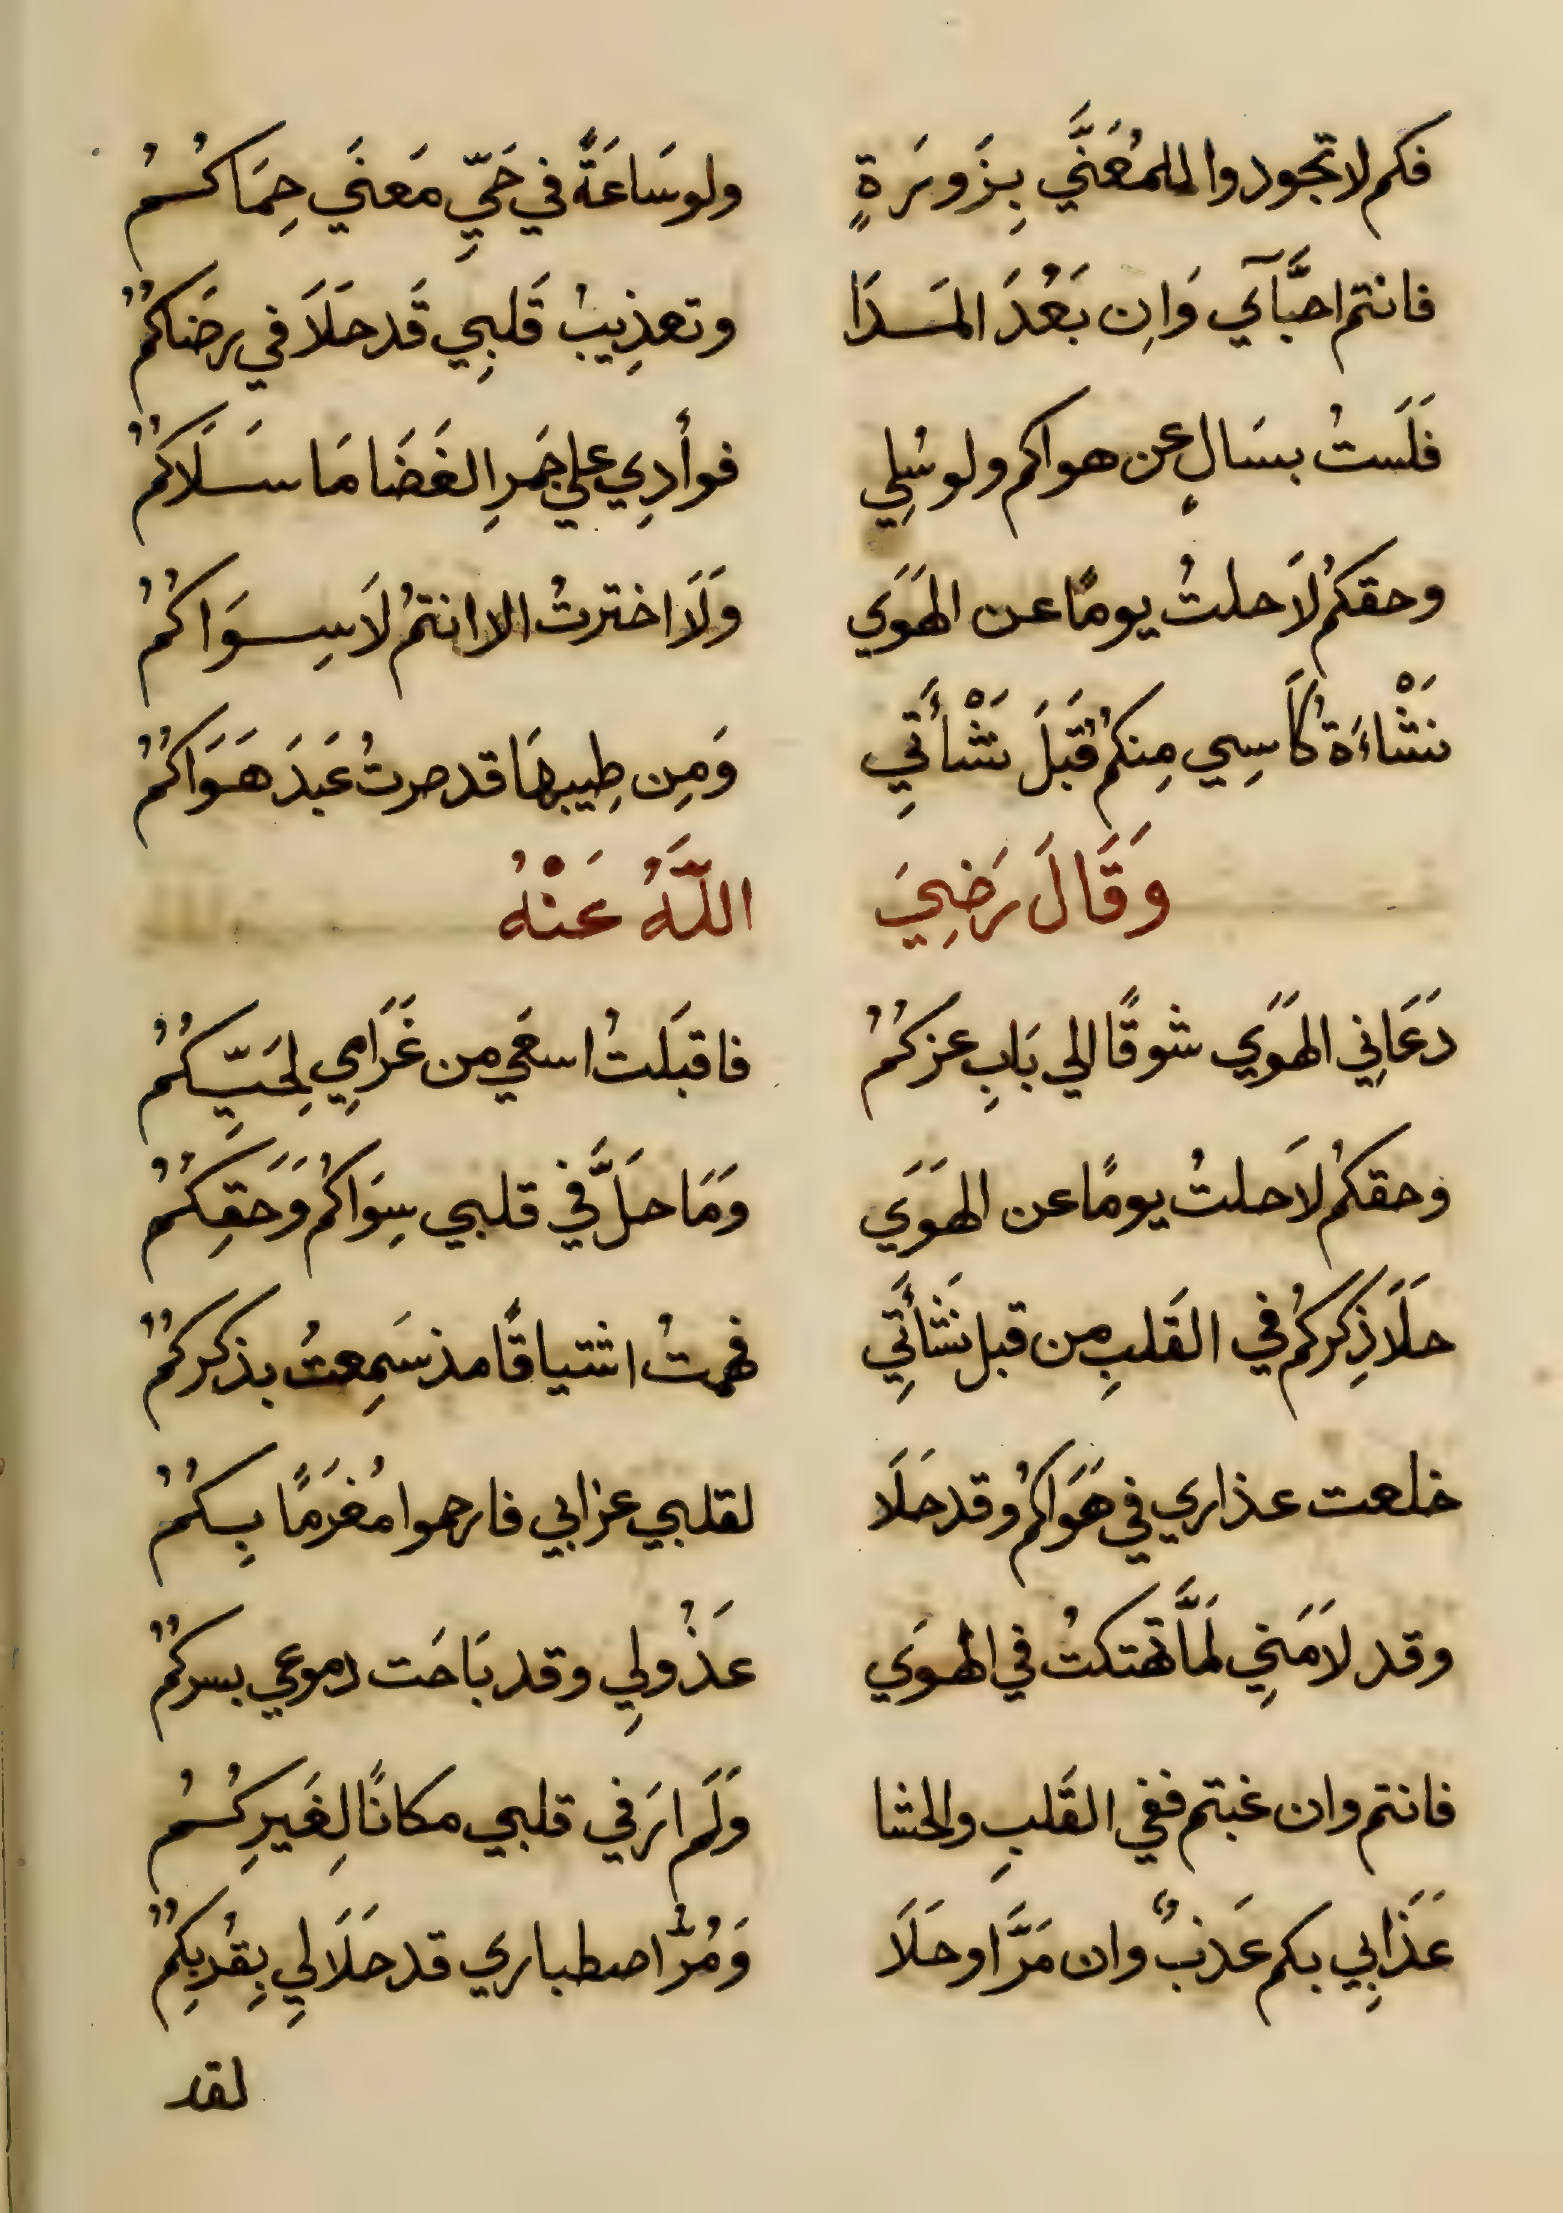 فكم لا تجودوا للمُعَنَّي بِزَورَةٍ ولو سَاعَةً في حَيِّ مَعنَي حِمَاكُمُ
فانتم احبَّآي وَاِن بَعُدَ المَدَا وتعذِيبُ قَلبِي قَد حَلَا في رضَاكُمُ
فَلَستُ بسَالٍ عن هواكم ولو سُلِي فوأدِي علي جَمرِ الغَضَا مَا سَلَاكُمُ
وحقكمُ لَا حلتُ يومًا عن الهَوَي وَلَا اخترتُ الا انتمُ لَا سِوَاكُمُ
نَشْاءَة كَاسِي مِنكمُ قَبلَ نَشْأَتِي وَمِن طِيبهَا قد صرتُ عَبدَ هَوَاكُمُ
وَقَالَ رَضِيَ اللَّهُ عَنْهُ
دَعَانِي الهَوَي شوقًا الي بَابِ عزكُمُ فاقبَلتُ اسعَي من غَرَامِي لِحَيِّكُمُ
وحقكمُ لَا حلتُ يومًا عن الهَوَي وَمَا حَلَّ في قلبي سِوَاكُم وَحَقِكُمُ
حلَا ذِكركُم في القَلبِ من قبل نَشأَتِي فهمتُ اشتياقًا مذ سَمِعتُ بذكركُمُ
خلعت عذاري في هَوَاكُم وقد حَلَا لقلبي عزابي فارحموا مُغرَمًا بِكُمُ
وقد لَامَنِي لَمَّا تهتكتُ في الهوَي عَذُولِي وقد بَاحَت دموعي بسركُمُ
فانتم وان غبتم ففي القَلبِ والحشا وَلَم ارَ في قلبي مكانًا لِغَيرِكُمُ
عَذَابِي بكم عَذبٌ وان مَرَّ او حَلَا وَمُرُّ اصطباري قد حَلَا لِي بِقُربِكُمُ
لقد